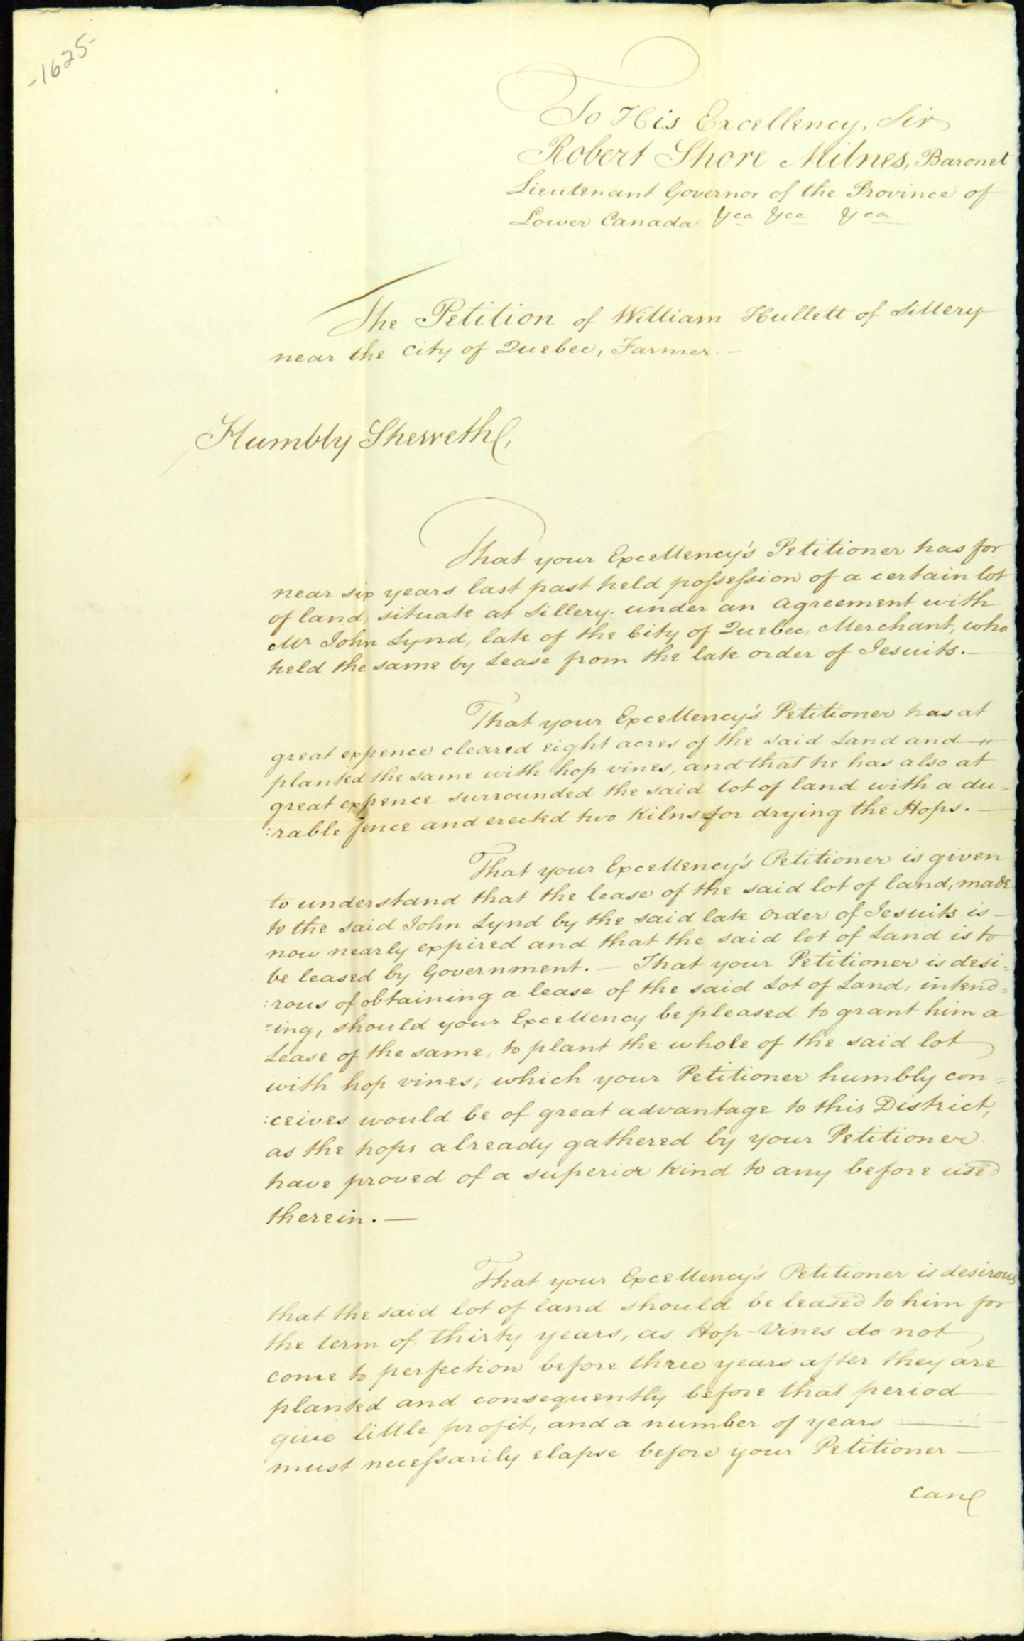 -1625-
To His Excellency, Sir
Robert Shore Milnes, Baronet
Lieutenant Governor of the Province of
Lower Canada &ca &ca &ca
The Petition of William Hullett of Sillery
near the City of Quebec, Farmer.—
Humbly Sheweth,
That your Excellency's Petitioner has for
near six years last past held possession of a certain lot
of land, situate at Sillery. under an agreement with
Mr John Lynd, late of the City of Quebec, Merchant, who
held the same by Lease from the late order of Jesuits.—
That your Excellency's Petitioner has at
great expence cleared eight acres of the said Land and
planted the same with hop vines, and that he has also at
great expence surrounded the said lot of land with a du-
:rable fence and erected two Kilns for drying the Hops.—
That your Excellency's Petitioner is given
to understand that the lease of the said lot of land, made
to the said John Lynd by the said late order of Jesuits is—
now nearly expired and that the said lot of Land is to
be leased by Government.— That your Petitioner is desi-
:rous of obtaining a lease of the said Lot of Land, intend=
=ing, should your Excellency be pleased to grant him a
Lease of the same, to plant the whole of the said lot
with hop vines; which your Petitioner humbly con=
:ceives would be of great advantage to this District,
as the hops already gathered by your Petitioner
have proved of a superior kind to any before used
therein.—
That your Excellency's Petitioner is desirous
that the said lot of land should be leased to him for
the term of thirty years, as Hop Vines do not
come to perfection before three years after they are
planted and consequently before that period
give little profit, and a number of years
must necessarily elapse before your Petitioner—
can